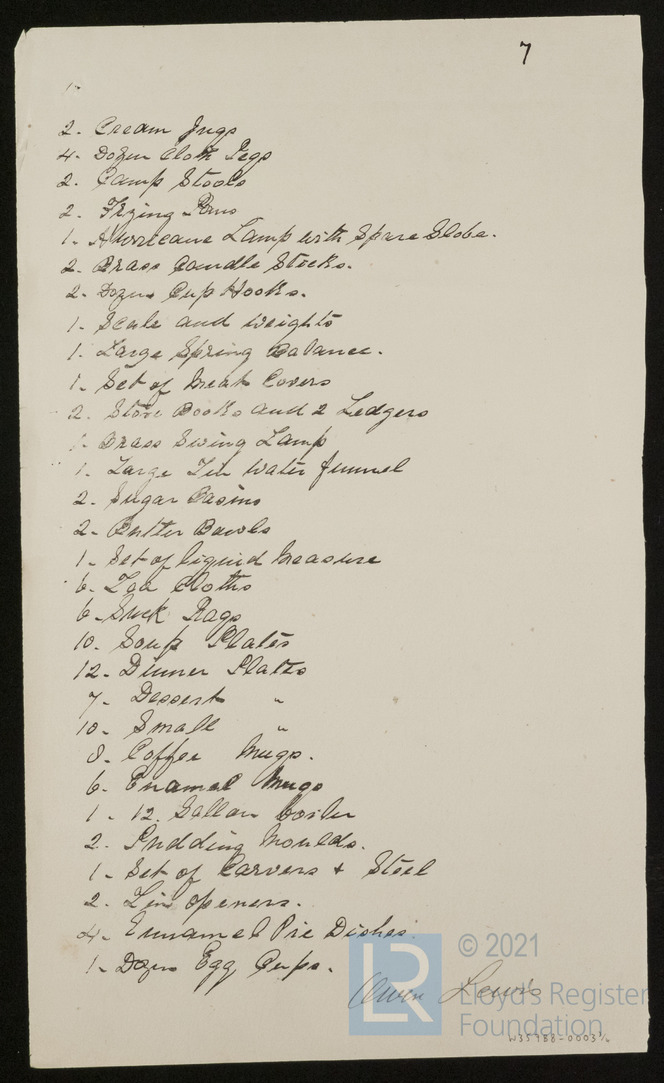 7
2. Cream Jugs
4. Dozen Cloth Pegs
2. Camp Stools
2. Frying Pans
1. Hurricane Lamp with Spare Globe.
2. Brass Candle Sticks.
2. Dozen Cup Hooks.
1. Scale and weights
1. Large Spring Balance.
1. Set of Meat Covers
2. Store Books and 2 Ledgers
1. Brass Swing Lamp
1. Large Tin Water funnel
2. Sugar Basins
2. Butter Bowls
1. Set of liquid Measure
6. Tea Cloths
6. Rags
10. Soup Plates
12. Dinner Plates
7. Dessert "
10. Small "
8. Coffee Mugs.
6. Enamel Mugs
1. 12. Gallon boiler
2. Pudding Moulds.
1. Set of Carvers + Steel
2. Tin openers.
4. Ennamel Pie Dishes.
1. Dozen Egg Cups.
Owen Lewis
LR
© 2021
Lloyd's Register
Foundation
W35788-0003